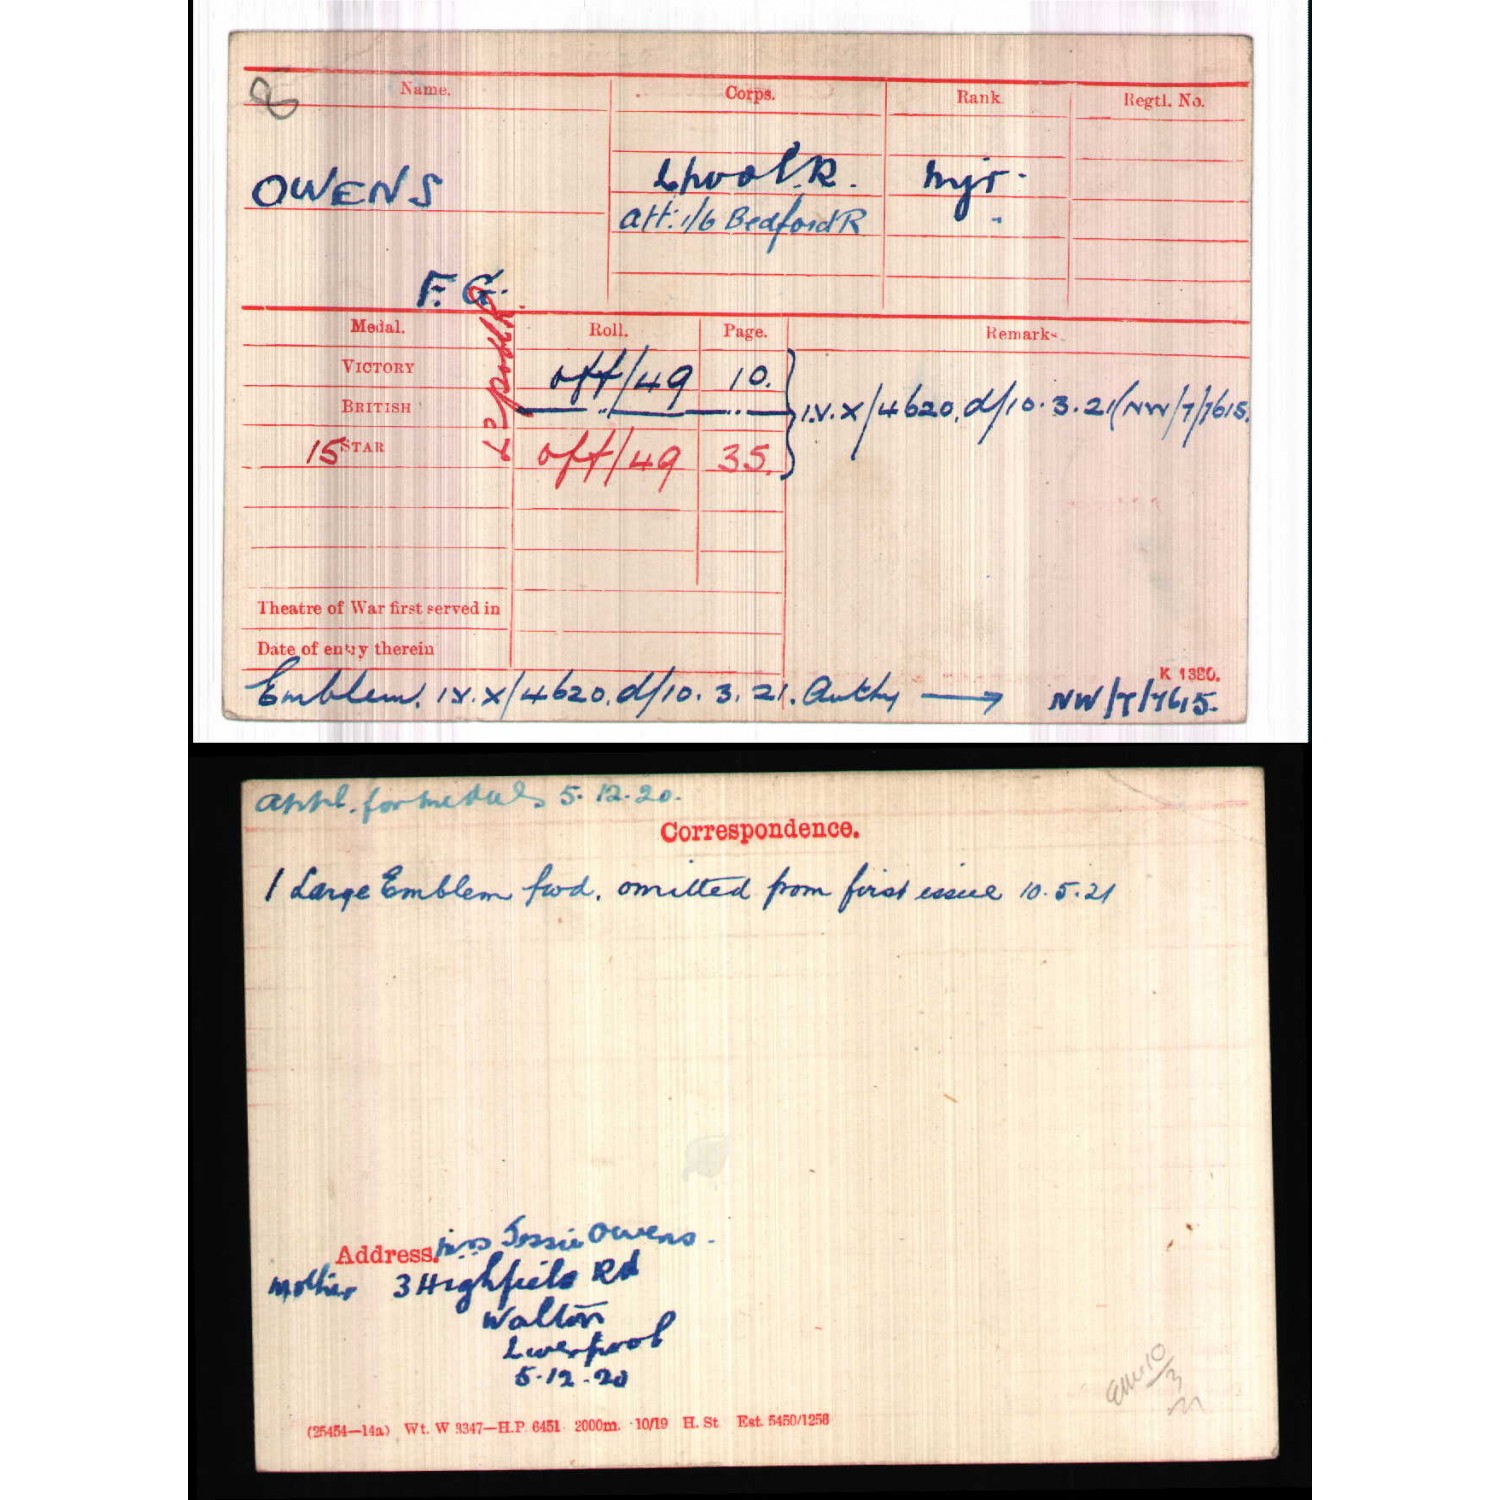 Name. Corps. Rank. Regtl. No.
OWENS L'pool. R. Mjr.
att: 1/6 Bedford R
F. G.
Medal. Roll. Page. Remarks.
VICTORY off/49 10.
BRITISH I.V.X/4620. d/10.3.21 (NW/7/7615.
15 STAR off/49 35.
Theatre of War first served in
Date of entry therein
K 1380.
Emblem. IV.X/4620. d/10.3.21. Authy → NW/7/7615.
Appl. for medals 5.12.20.
Correspondence.
1 Large Emblem fwd. omitted from first issue 10.5.21
Address. Mrs Jessie Owens.
Mother 3 Highfield Rd
Walton
Liverpool
5.12.20
(25454—14a) Wt. W 3347—H.P. 6451 2000m. 10/19 H. St Est. 5450/1256